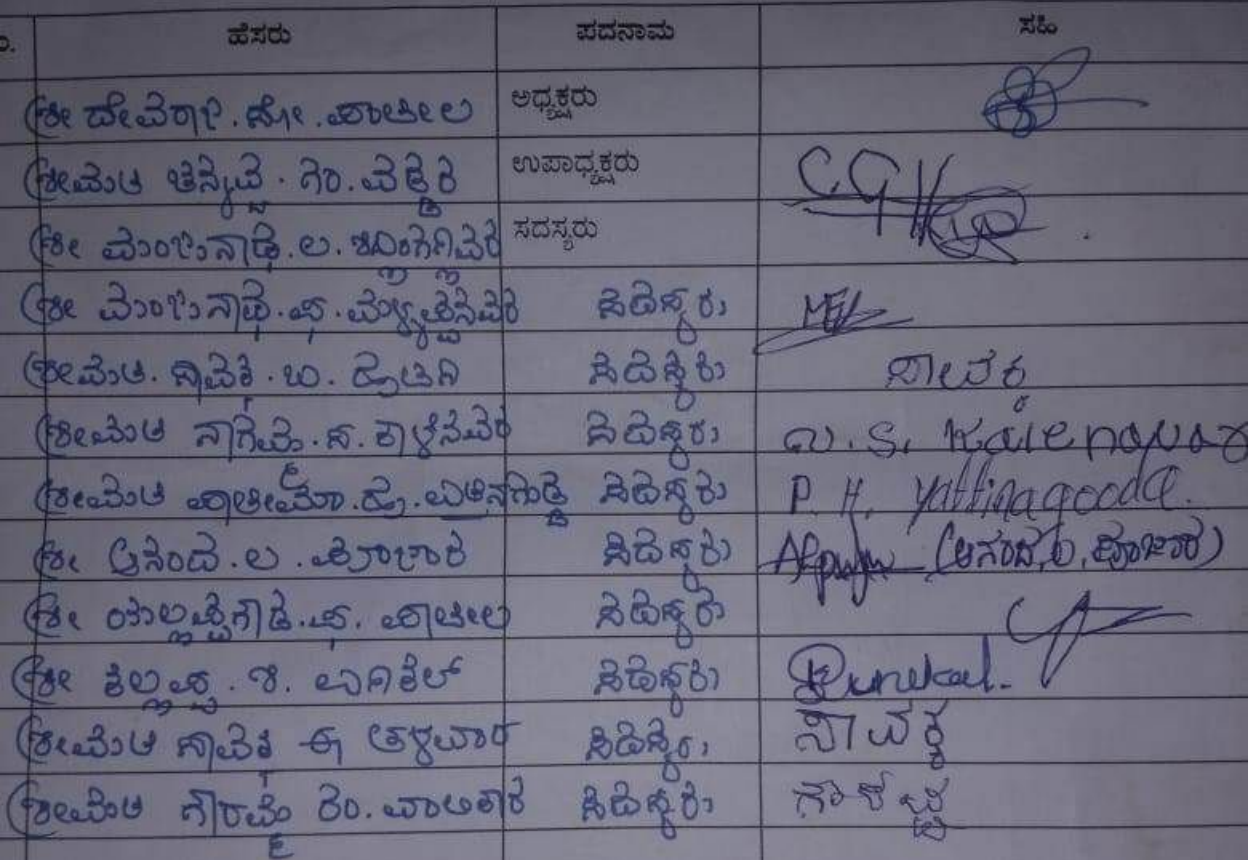 ಹೆಸರು ಪದನಾಮ ಸಹಿ
ಶ್ರೀ ದೇವರಾಜ. ಹೇ. ಪಾಟೀಲ ಅಧ್ಯಕ್ಷರು
ಶ್ರೀಮತಿ ಚನ್ನವ್ವ. ಗಂ. ವಡ್ಡರ ಉಪಾಧ್ಯಕ್ಷರು
ಶ್ರೀ ಮಂಜುನಾಥ. ಲ. ಸದಸ್ಯರು
ಶ್ರೀ ಮಂಜುನಾಥ. ಫ. ಸದಸ್ಯರು
ಶ್ರೀಮತಿ. ಸಾವಕ್ಕ. ಬ. ಸದಸ್ಯರು ಸಾವಕ್ಕ
ಶ್ರೀಮತಿ ನಾಗಮ್ಮ. ಸ. ಕಾಳೆನವರ ಸದಸ್ಯರು N. S. Kalenavar
ಶ್ರೀಮತಿ ಪಾತೀಮಾ. ಹು. ಯತ್ತಿನಗುಡ್ಡ ಸದಸ್ಯರು P. H. yattinagoodd.
ಶ್ರೀ ಆನಂದ. ಲ. ಪೂಜಾರ ಸದಸ್ಯರು (ಆನಂದ, ಲ, ಪೂಜಾರ)
ಶ್ರೀ ಯಲ್ಲಪ್ಪಗೌಡ. ಫ. ಪಾಟೀಲ ಸದಸ್ಯರು
ಶ್ರೀ ಕಲ್ಲಪ್ಪ. ಶಿ. ಸದಸ್ಯರು
ಶ್ರೀಮತಿ ಸಾವಕ್ಕ ಈ ತಳವಾರ ಸದಸ್ಯರು ಸಾವಕ್ಕ
ಶ್ರೀಮತಿ ಗೌರಮ್ಮ ರಂ. ವಾಲಿಕಾರ ಸದಸ್ಯರು